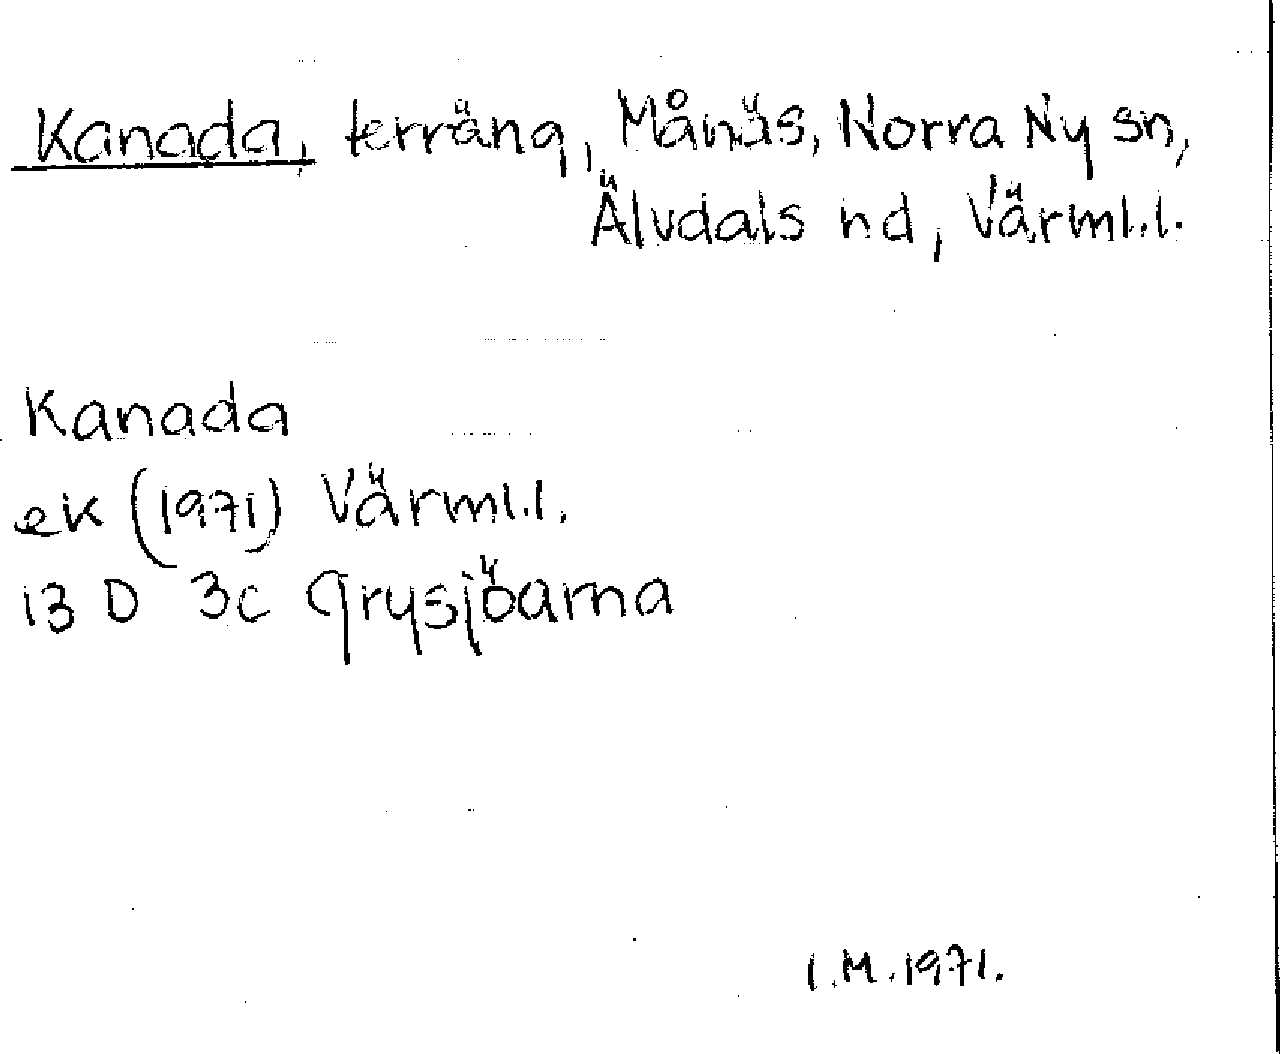 Kanada, terräng, Månäs, Norra Ny sn,
Älvdals hd, Värml.l.
Kanada
ek (1971) Värml.l.
13 D 3c Grysjöarna
I.M.1971.